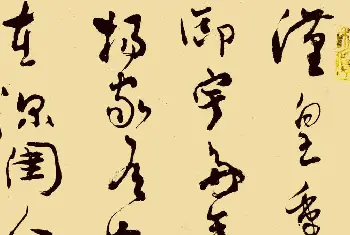 漢皇重
御宇多年
楊家有
在深閨人